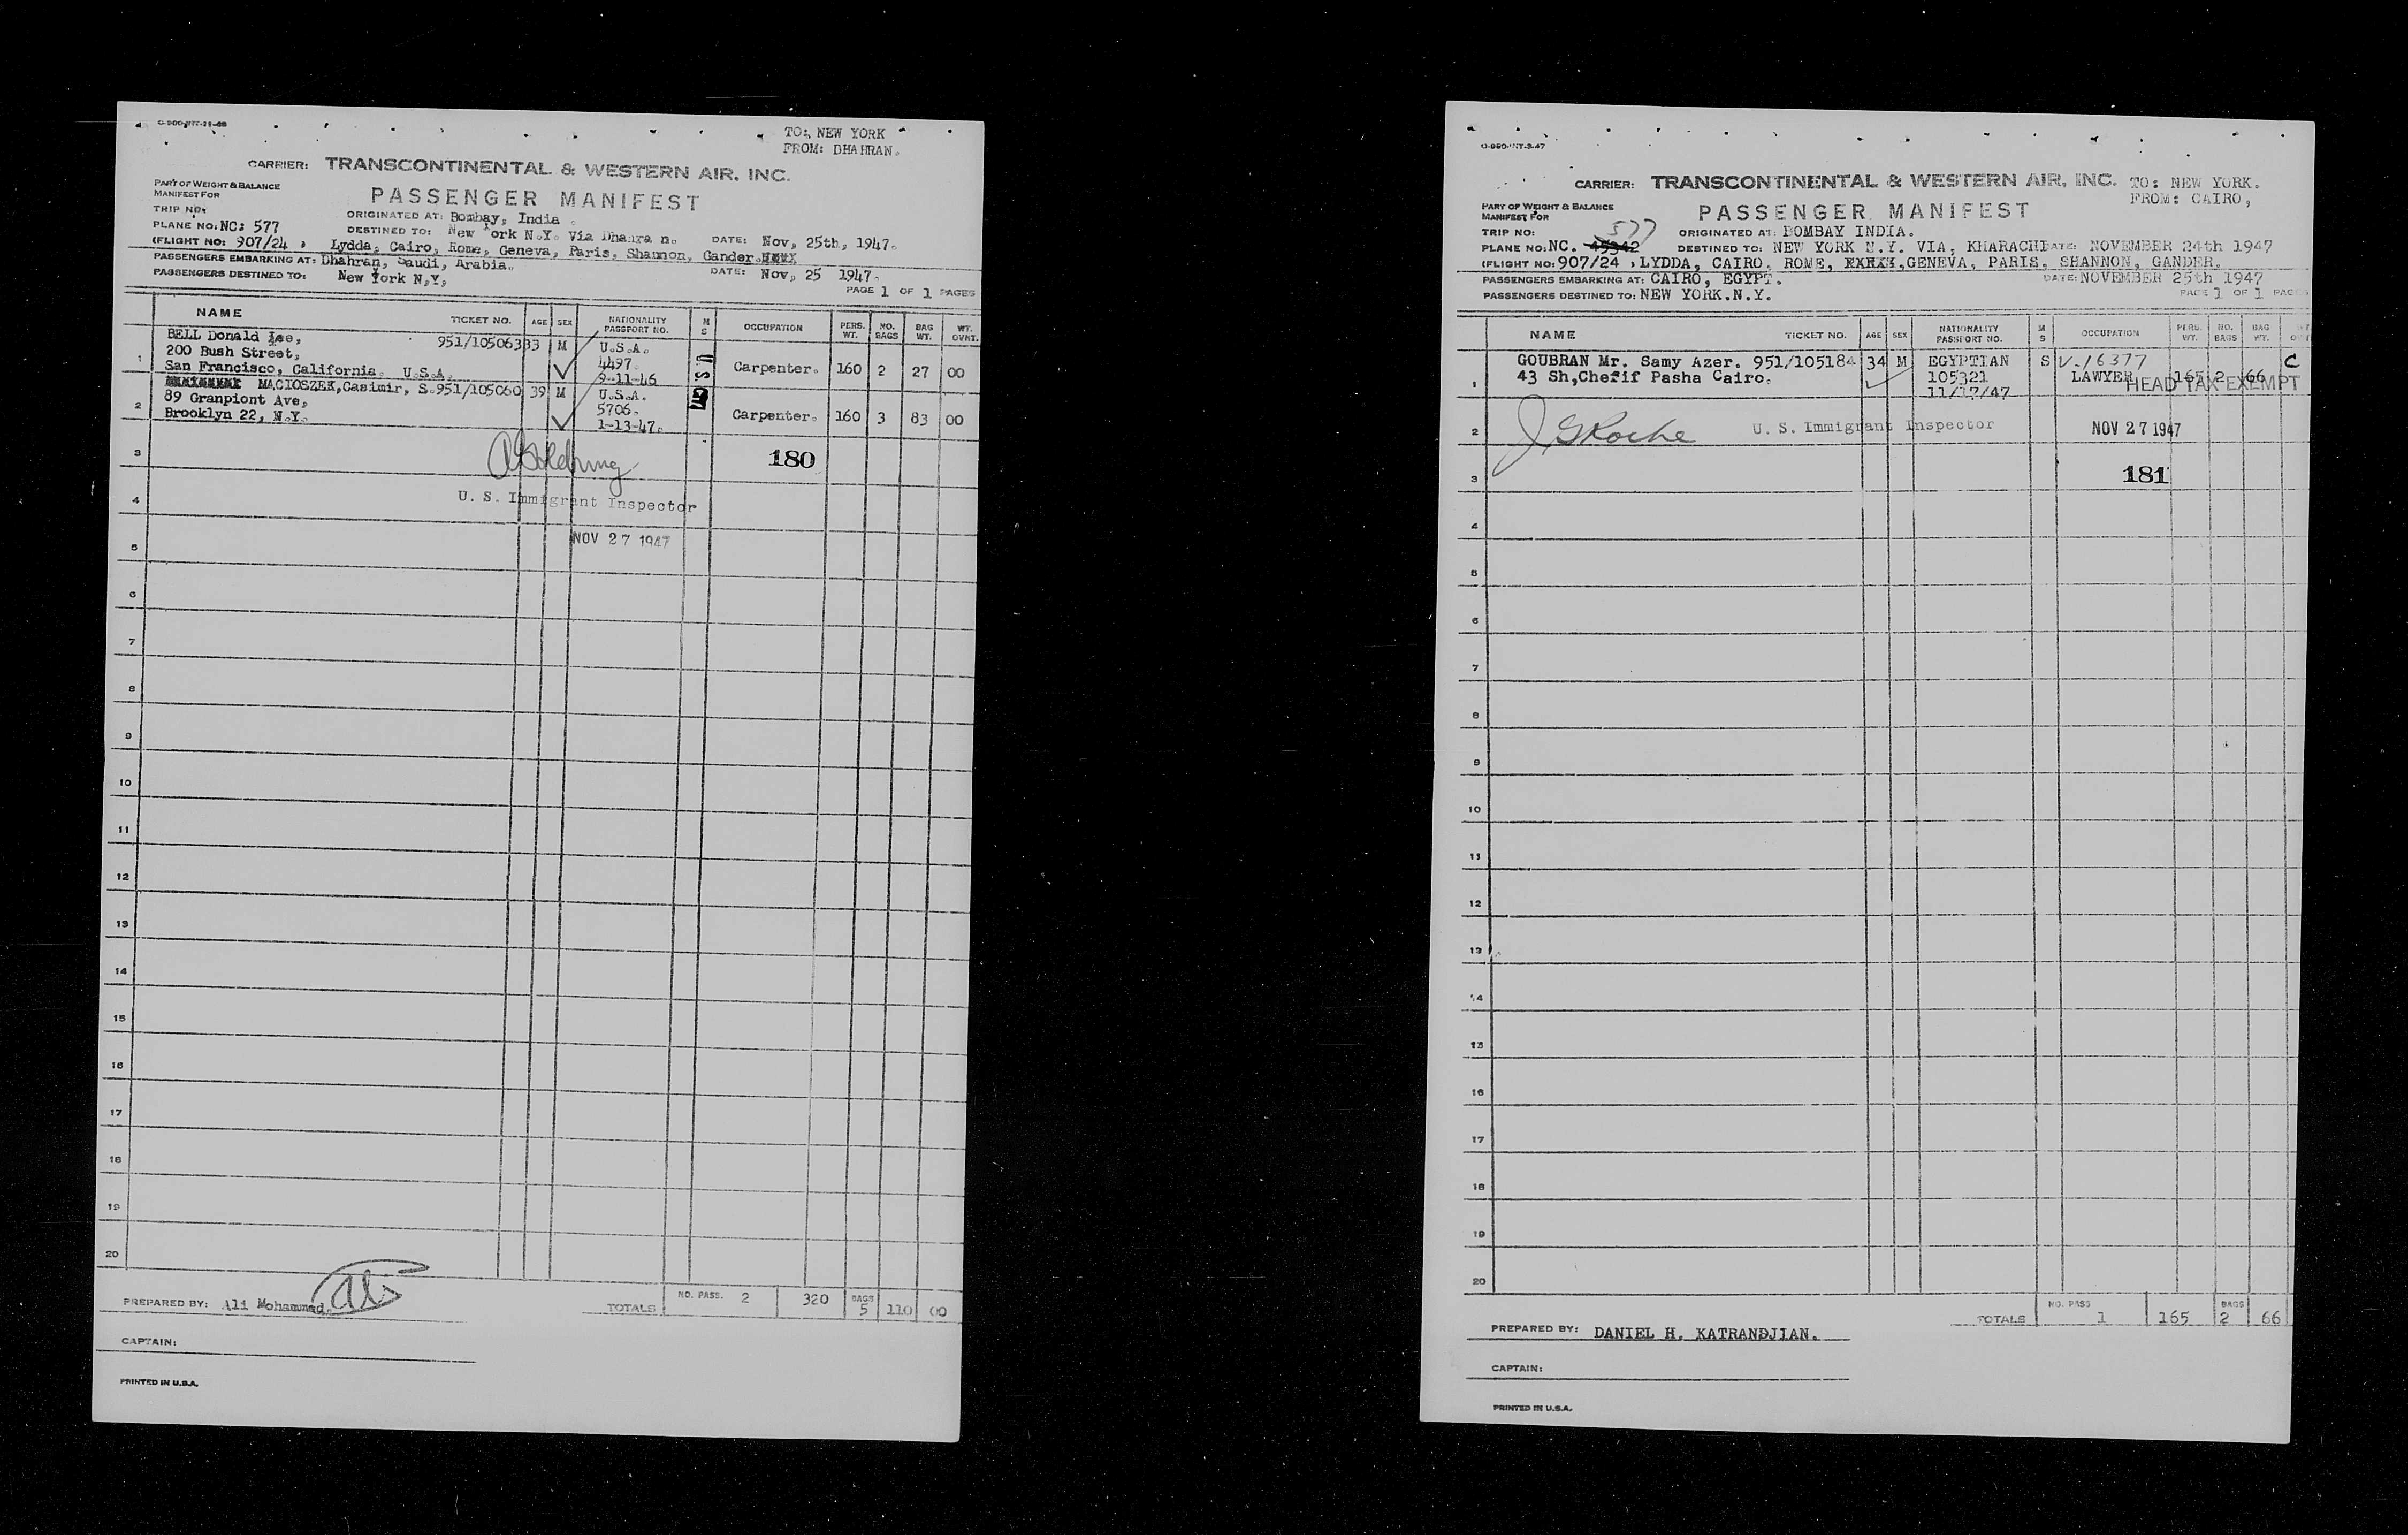 TO: NEW YORK
FROM: DHAHRAN.
CARRIER: TRANSCONTINENTAL & WESTERN AIR, INC.
PART OF WEIGHT & BALANCE
MANIFEST FOR
PASSENGER MANIFEST
TRIP NO:
ORIGINATED AT: Bombay, India .
PLANE NO: NC: 577
DESTINED TO: New York N.Y. Via Dhahra n. DATE: Nov, 25th, 1947.
(FLIGHT NO: 907/24 , Lydda, Cairo, Rome, Geneva, Paris, Shannon, Gander.
PASSENGERS EMBARKING AT: Dhahran, Saudi, Arabia. DATE: Nov, 25 1947.
PASSENGERS DESTINED TO: New York N,Y,
PAGE 1 OF 1 PAGES
NAME TICKET NO. AGE SEX NATIONALITY PASSPORT NO. M S OCCUPATION PERS. WT. NO. BAGS BAG WT. WT. OVNT.
1 BELL Donald Lee, 951/10506333 M U.S.A.
200 Bush Street, 4497. Carpenter. 160 2 27 00
San Francisco, California. U.S.A. 9-11-46
2 MACIOSZEK,Casimir, S.951/105060 39 M U.S.A.
89 Granpiont Ave, 5706. Carpenter. 160 3 83 00
Brooklyn 22, N.Y. 1-13-47.
3 180
4 U. S. Immigrant Inspector
5 NOV 27 1947
6
7
8
9
10
11
12
13
14
15
16
17
18
19
20
PREPARED BY: Ali Mohammad.
TOTALS NO. PASS. 2 320 BAGS 5 110 00
CAPTAIN:
PRINTED IN U.S.A.
CARRIER: TRANSCONTINENTAL & WESTERN AIR, INC. TO: NEW YORK.
FROM: CAIRO,
PART OF WEIGHT & BALANCE
MANIFEST FOR
PASSENGER MANIFEST
TRIP NO: 577
ORIGINATED AT: BOMBAY INDIA.
PLANE NO: NC. 45342 DESTINED TO: NEW YORK N.Y. VIA, KHARACHI DATE: NOVEMBER 24th 1947
(FLIGHT NO: 907/24 , LYDDA, CAIRO, ROME, GENEVA, PARIS, SHANNON, GANDER.
PASSENGERS EMBARKING AT: CAIRO, EGYPT. DATE: NOVEMBER 25th 1947
PASSENGERS DESTINED TO: NEW YORK.N.Y. PAGE 1 OF 1 PAGES
NAME TICKET NO. AGE SEX NATIONALITY PASSPORT NO. M S OCCUPATION PERS. WT. NO. BAGS BAG WT.
1 GOUBRAN Mr. Samy Azer. 951/105184 34 M EGYPTIAN S V-16377 C
43 Sh,Cherif Pasha Cairo. 105321 LAWYER 165 2 66
HEAD TAX EXEMPT
11/17/47
2 J. G Roche U. S. Immigrant Inspector NOV 27 1947
3 181
4
5
6
7
8
9
10
11
12
13
14
15
16
17
18
19
20
TOTALS NO. PASS 1 165 BAGS 2 66
PREPARED BY: DANIEL H. KATRANDJIAN.
CAPTAIN:
PRINTED IN U.S.A.